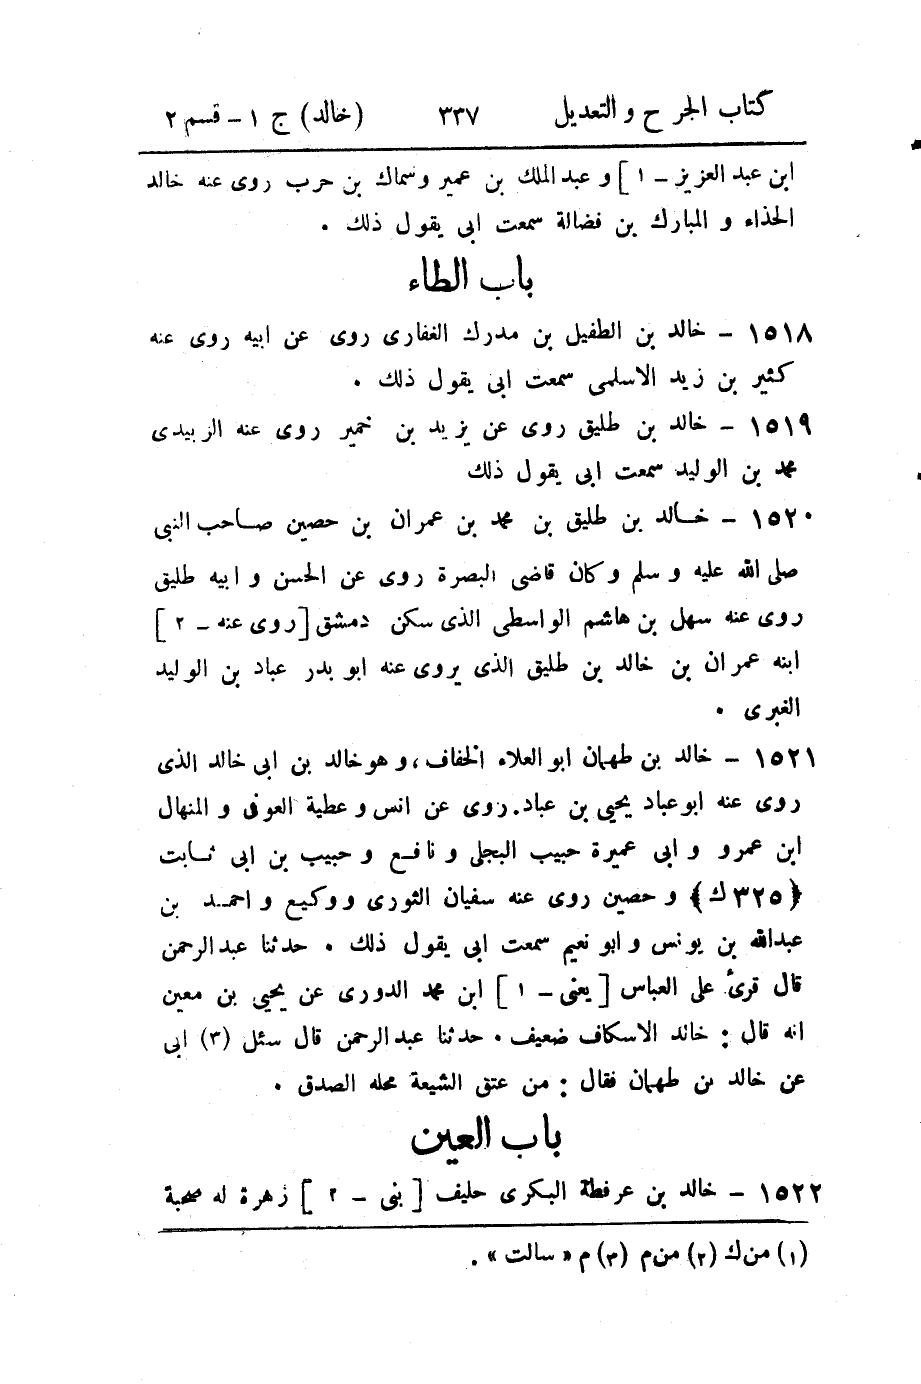 كتاب الجرح والتعديل ٣٣٧ (خالد) ج ١ - قسم ٢
ابن عبد العزيز - ١] و عبد الملك بن عمير وسماك بن حرب روى عنه خالد
الحذاء و المبارك بن فضالة سمعت ابى يقول ذلك .
باب الطاء
١٥١٨ - خالد بن الطفيل بن مدرك الغفارى روى عن ابيه روى عنه
كثير بن زيد الاسلمى سمعت ابى يقول ذلك .
١٥١٩ - خالد بن طليق روى عن يزيد بن خمير روى عنه الزبيدى
محمد بن الوليد سمعت ابى يقول ذلك
١٥٢٠ - خالد بن طليق بن محمد بن عمران بن حصين صاحب النبى
صلى الله عليه و سلم وكان قاضى البصرة روى عن الحسن و ابيه طليق
روى عنه سهل بن هاشم الواسطى الذى سكن دمشق [روى عنه - ٢]
ابنه عمران بن خالد بن طليق الذى يروى عنه ابو بدر عباد بن الوليد
الغبرى .
١٥٢١ - خالد بن طهمان ابو العلاء الخفاف، و هو خالد بن ابى خالد الذى
روى عنه ابو عباد يحيى بن عباد. روى عن انس و عطية العوفى و المنهال
ابن عمرو و ابى عميرة حبيب البجلى و نافع و حبيب بن ابى ثابت
(٣٢٥ك) و حصين روى عنه سفيان الثورى و وكيع و احمد بن
عبدالله بن يونس و ابو نعيم سمعت ابى يقول ذلك . حدثنا عبد الرحمن
قال قرئ على العباس [يعنى - ١] ابن محمد الدورى عن يحيى بن معين
انه قال : خالد الاسكاف ضعيف . حدثنا عبد الرحمن قال سئل (٣) ابى
عن خالد بن طهمان فقال : من عتق الشيعة محله الصدق .
باب العين
١٥٢٢ - خالد بن عرفطة البكرى حليف [بنى - ٢] زهرة له صحبة
(١) من ك (٢) من م (٣) م « سالت » .